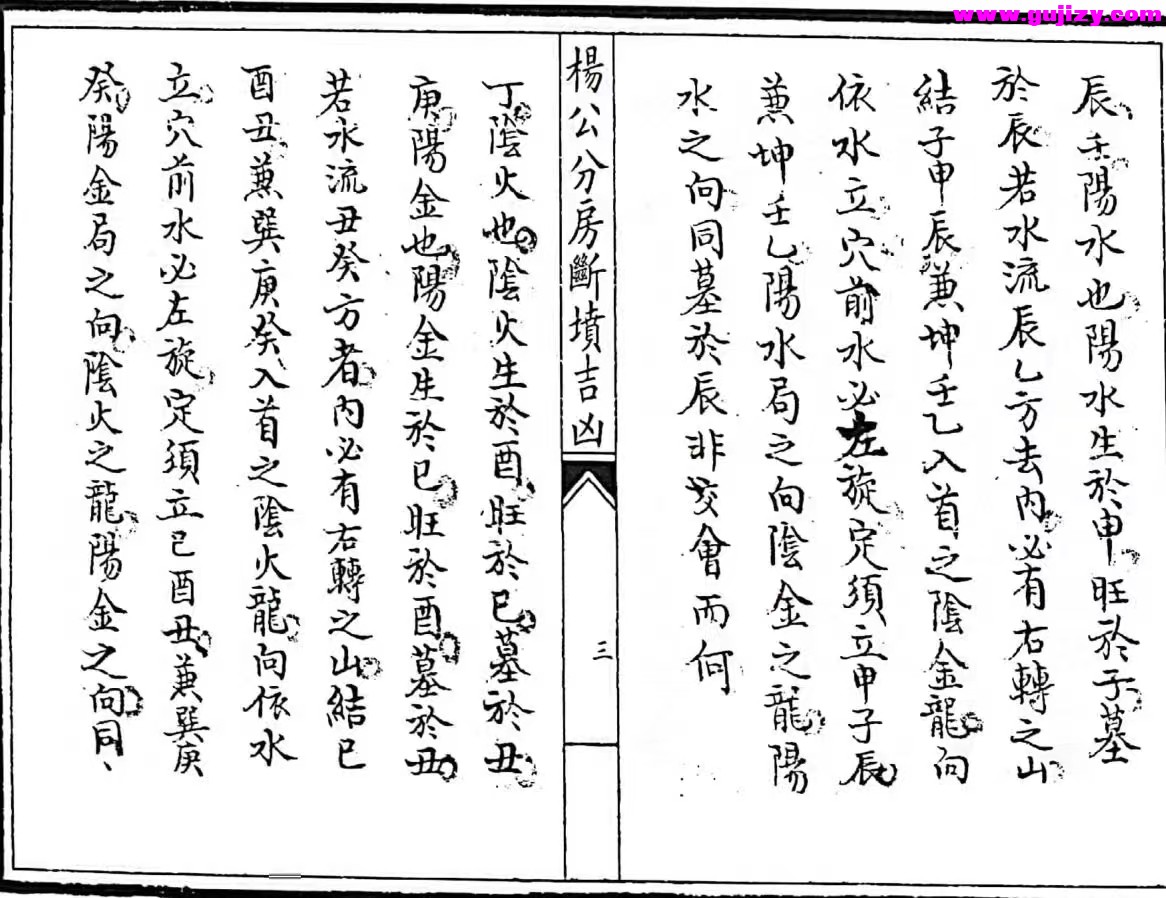 www.gujizy.com
辰壬陽水也陽水生於申旺於子墓
於辰若水流辰乙方去內必有右轉之山
結子申辰兼坤壬乙入首之陰金龍向
依水立穴前水必左旋定須立申子辰
兼坤壬乙陽水局之向陰金之龍陽
水之向同墓於辰非交會而何
楊公分房斷墳吉凶
三
丁陰火也陰火生於酉旺於巳墓於丑
庚陽金也陽金生於巳旺於酉墓於丑
若水流丑癸方者內必有右轉之山結巳
酉丑兼巽庚癸入首之陰火龍向依水
立穴前水必左旋定須立巳酉丑兼巽庚
癸陽金局之向陰火之龍陽金之向同、